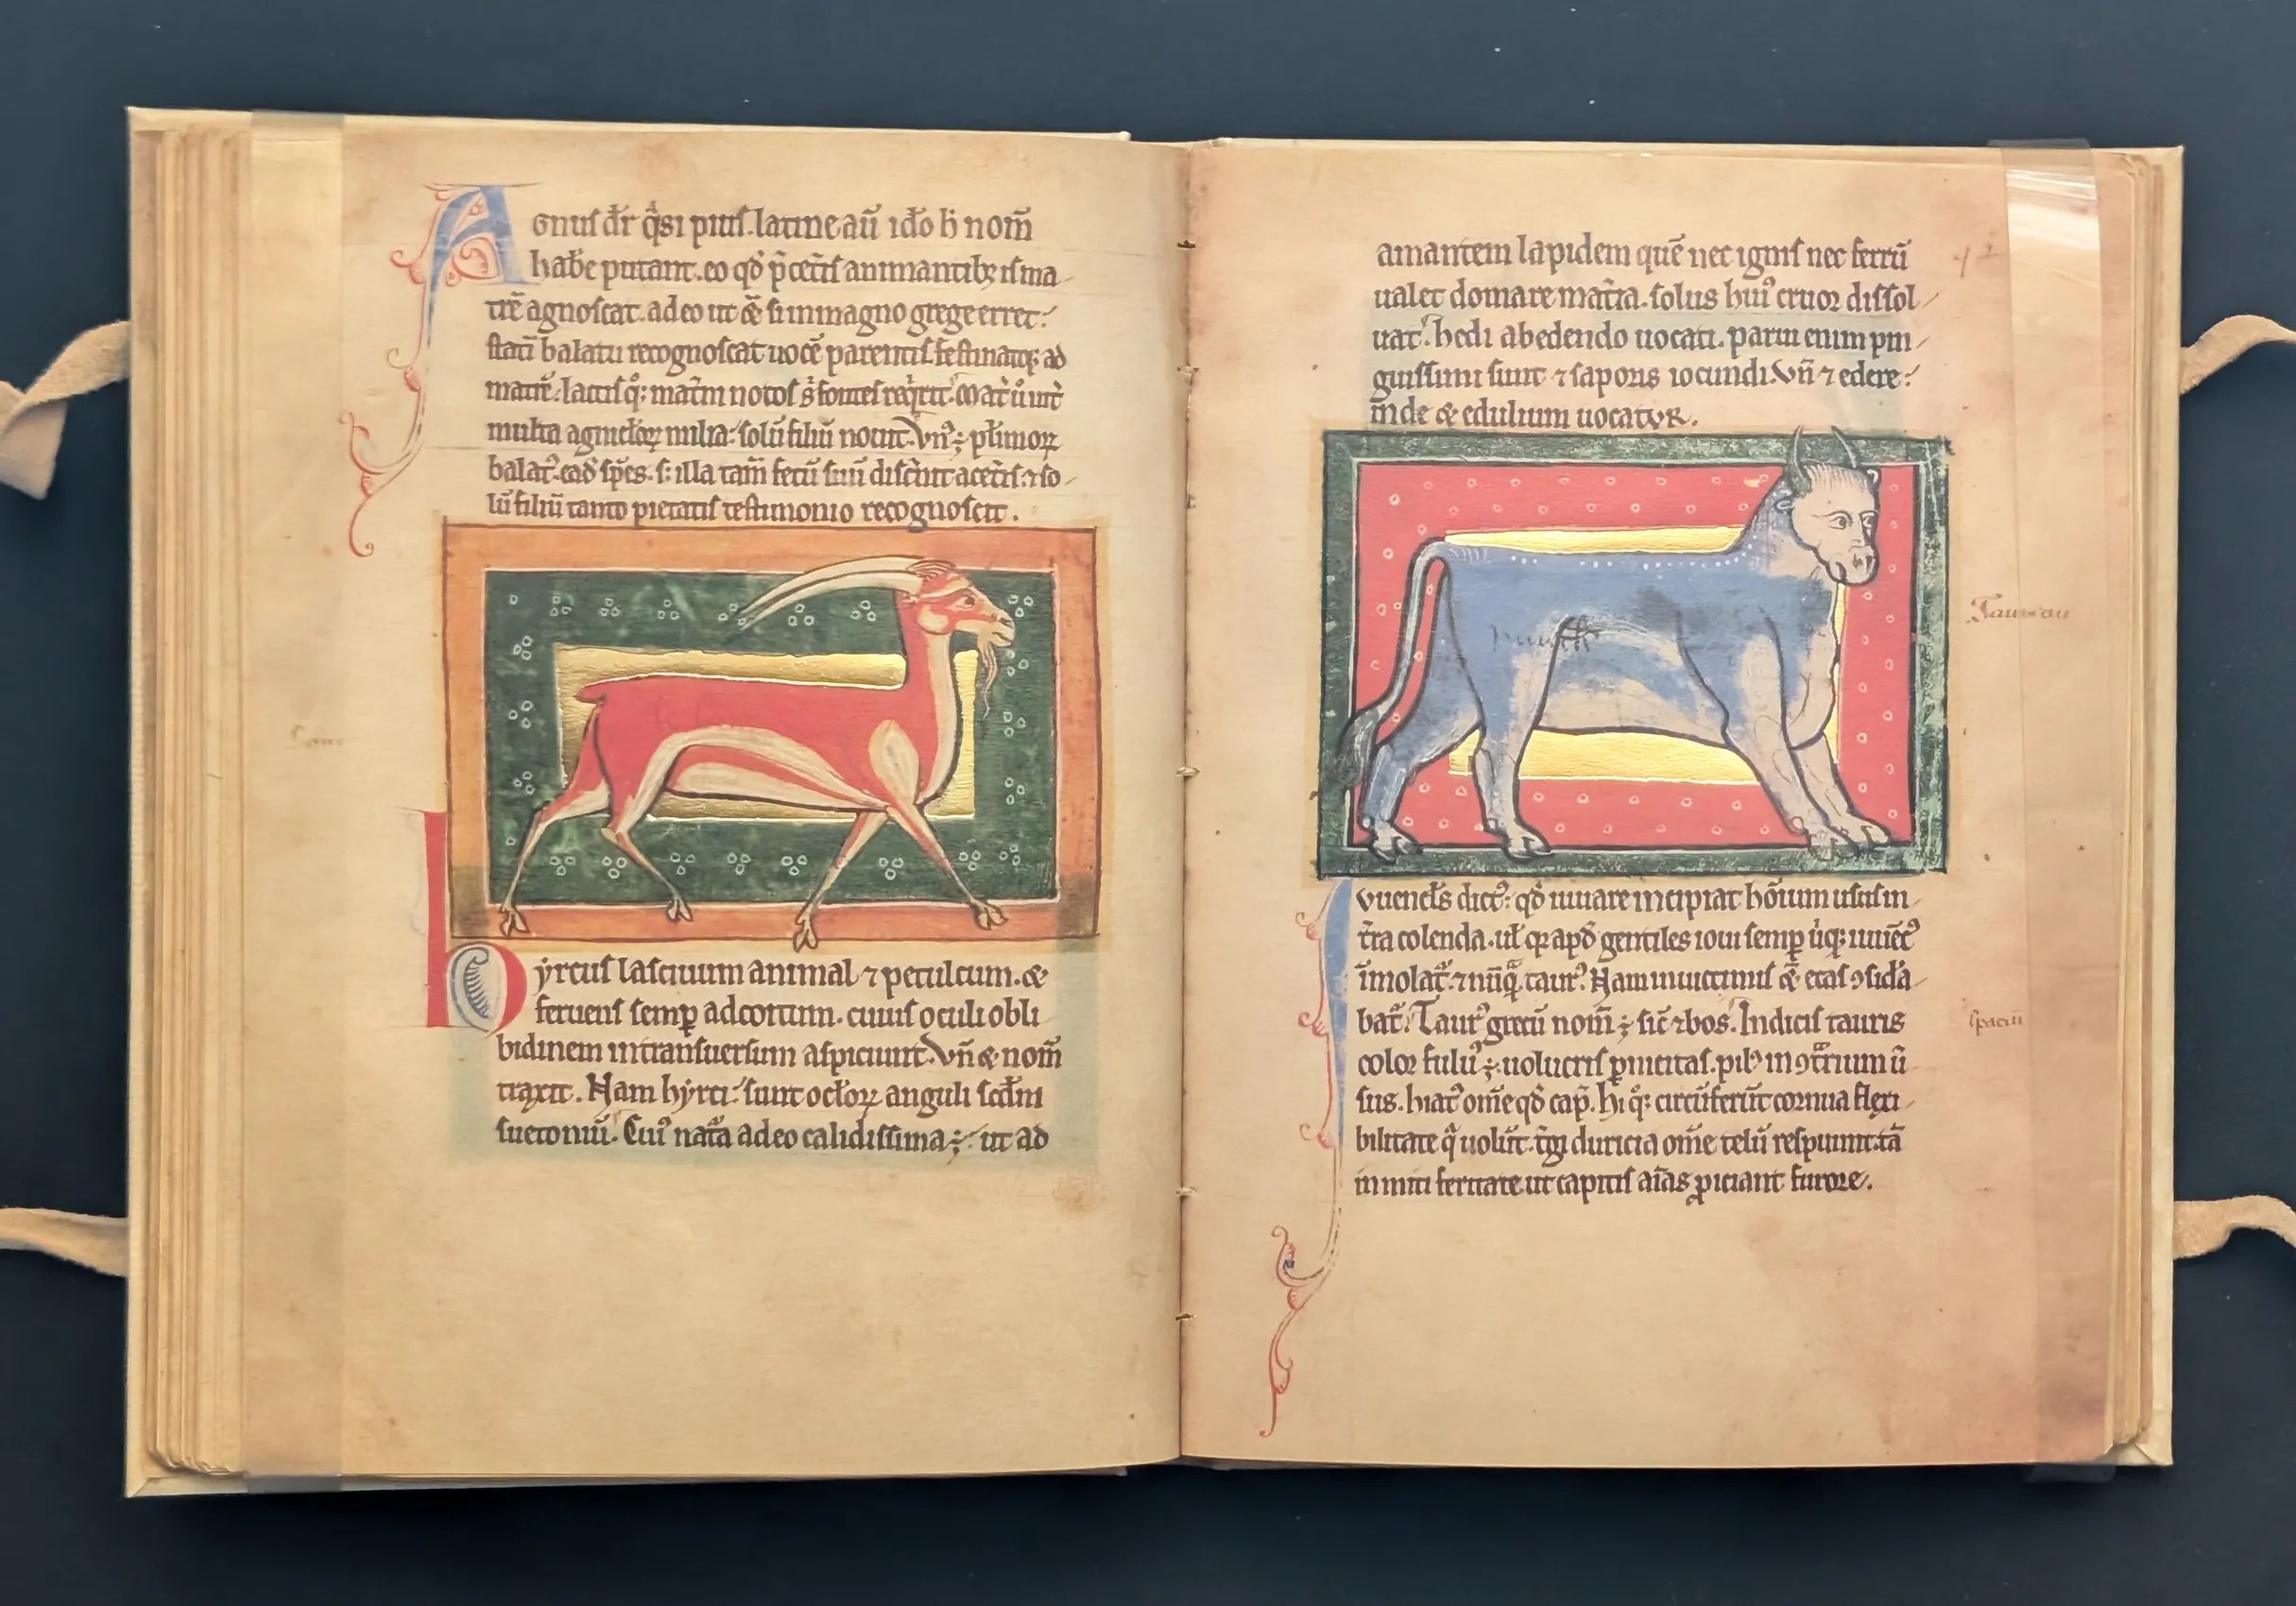 Agnuſ dr̄ q̄si piuſ. latine aū ido h̄ nom̄
habe putant. eo qd̄ p̄ ceteriſ animantibꝫ iſ ma
trē agnoſcat. adeo ut & ſi in magno grege erret:
ſtatī balatu recognoſcat uocē parentiſ. feſtinatqꝫ ad
matrē. lactiſ qͦꝫ mat̄m notoſ
multa agnicloꝝ milia: ſolū filiū
balatꝰ. ead̄ ſpēs. ſꝫ illa tam̄ fetū ſuū diſcernit a cet̄iſ: ⁊ ſo
lū filiū tanto pietatiſ teſtimonio recognoſcit.
Hẏrcuſ laſciuum animal ⁊ petulcum. &
feruenſ ſemꝑ ad coitum. cuiuſ oculi ob li
bidinem in tranſuerſum aſpiciunt. Vn̄ & nom̄
traxit. Nam hẏrci: ſunt oclͦoꝝ anguli ſcd̄m
ſuetoniū. Cuiꝰ nata adeo calidiſſima ÷ ut ad
amantem lapidem quē nec igniſ nec ferrū
ualet domare mat̄ia. ſolus huiꝰ cruor diſſol
uat. hedi ab edendo uocati. parui enim pin
guiſſimi ſunt ⁊ ſaporis iocundi. Vn̄ ⁊ edere:
īnde & edulium uocatvr.
Taureau
Iuuencꝰs dictꝰ: qd̄ iuuare incipiat hoīum uſuſ in
t̄ra colenda. ul̄ q̄ apd̄ gentiles ioui ſemꝑ uͥqꝫ iuuēcꝰ
īmolat̄. ⁊ nūq̄ taurꝰ. Nam in uictimiſ & etaſ ꝯſida
bat̄. Taurꝰ grecū nom̄ ÷ ſic̄ ⁊ bos. Indiciſ tauris
color fuluꝰ ÷ uolucriſ ꝑnicitaſ. pilꝰ in ꝯt̄rium ū
sus. hiatꝰ om̄e qd̄ cap̄. hi qͦꝫ circūferūt cornua flexi
bilitate q̄ uolūt. t̄gi duricia om̄e telū reſpuunt. tā
in miti feritate ut captiſ aīas ꝓiciant furore.